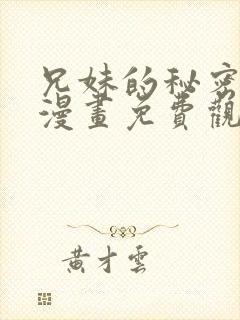 兄妹的秘密
漫畫免費觀
黃才雲